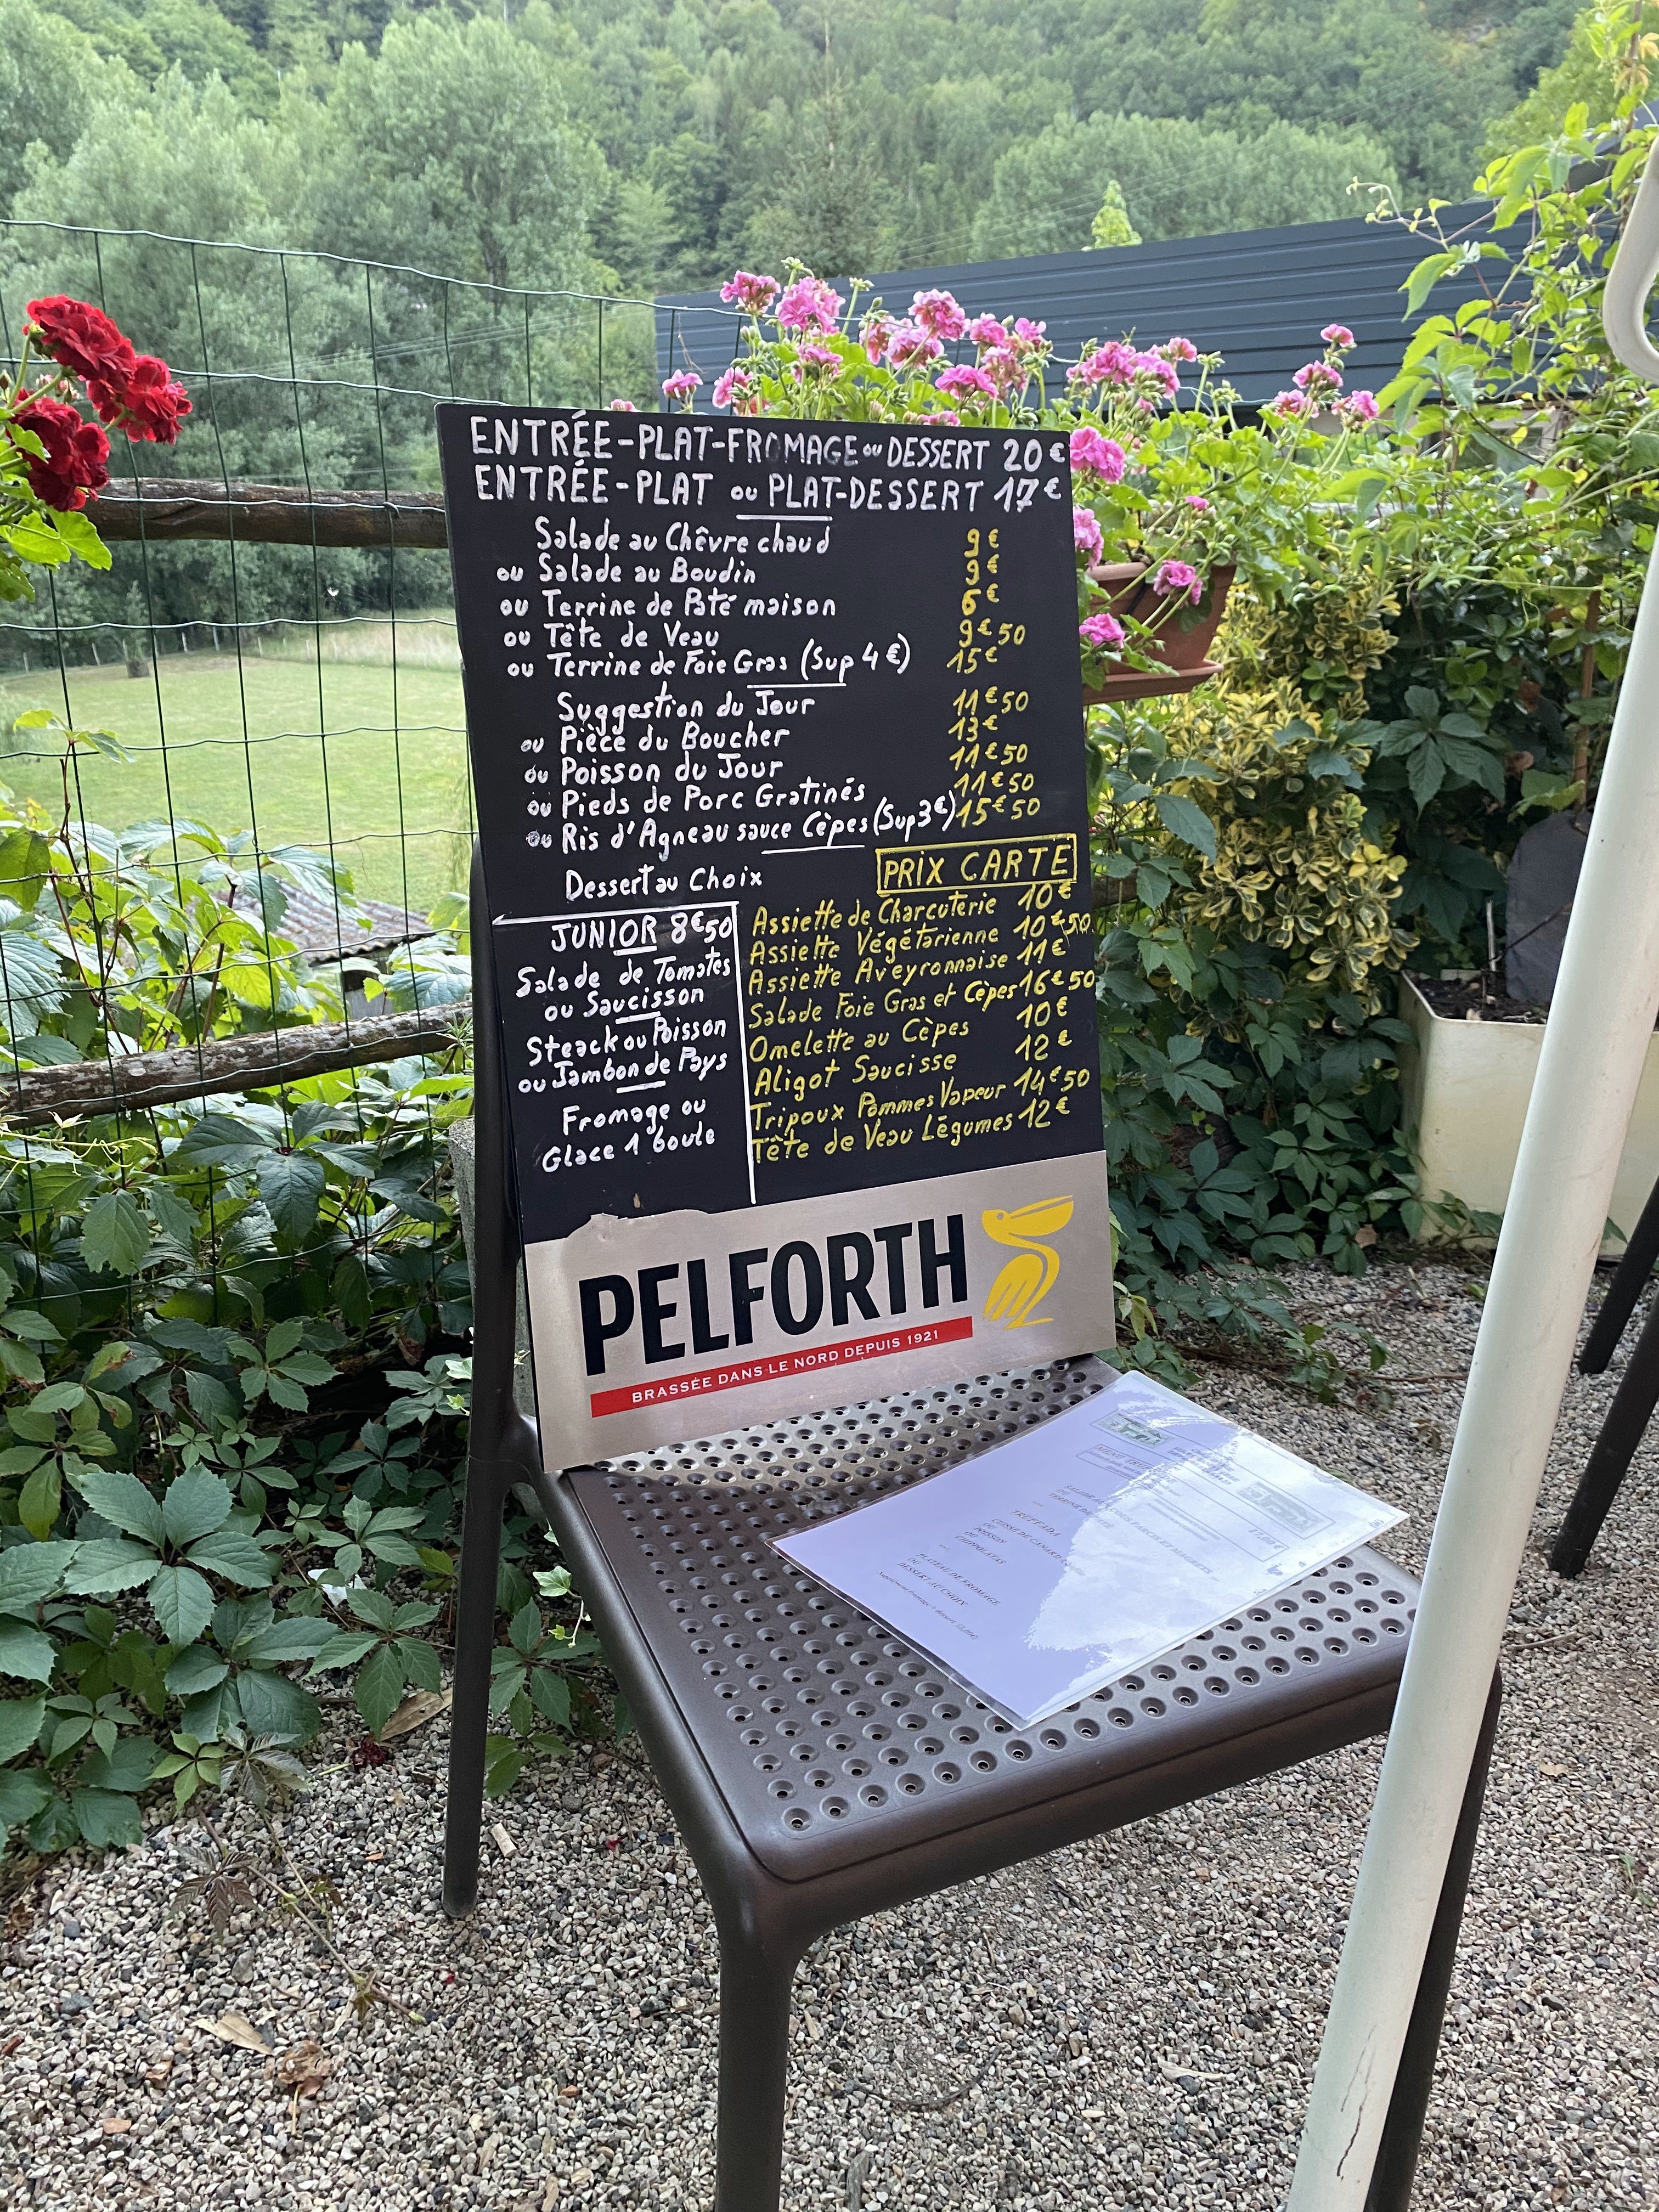 ENTRÉE-PLAT-FROMAGE ou DESSERT 20€
ENTRÉE-PLAT ou PLAT-DESSERT 17€
Salade au Chêvre chaud 9€
ou Salade au Boudin 9€
ou Terrine de Pâté maison 6€
ou Tête de Veau 9€50
ou Terrine de Foie Gras (Sup 4€) 15€
Suggestion du Jour 11€50
ou Pièce du Boucher 13€
ou Poisson du Jour 11€50
ou Pieds de Porc Gratinés 11€50
ou Ris d'Agneau sauce Cèpes (Sup 3€) 15€50
Dessert au Choix
PRIX CARTE
JUNIOR 8€50
Salade de Tomates
ou Saucisson
Steack ou Poisson
ou Jambon de Pays
Fromage ou
Glace 1 boule
Assiette de Charcuterie 10€
Assiette Végétarienne 10€50
Assiette Aveyronnaise 11€
Salade Foie Gras et Cèpes 16€50
Omelette au Cèpes 10€
Aligot Saucisse 12€
Tripoux Pommes Vapeur 14€50
Tête de Veau Légumes 12€
PELFORTH
BRASSÉE DANS LE NORD DEPUIS 1921
TRUFFADA
CUISSE DE CANARD
OU
POISSON
OU
CHIPPOLATAS
PLATEAU DE FROMAGE
OU
DESSERT AU CHOIX